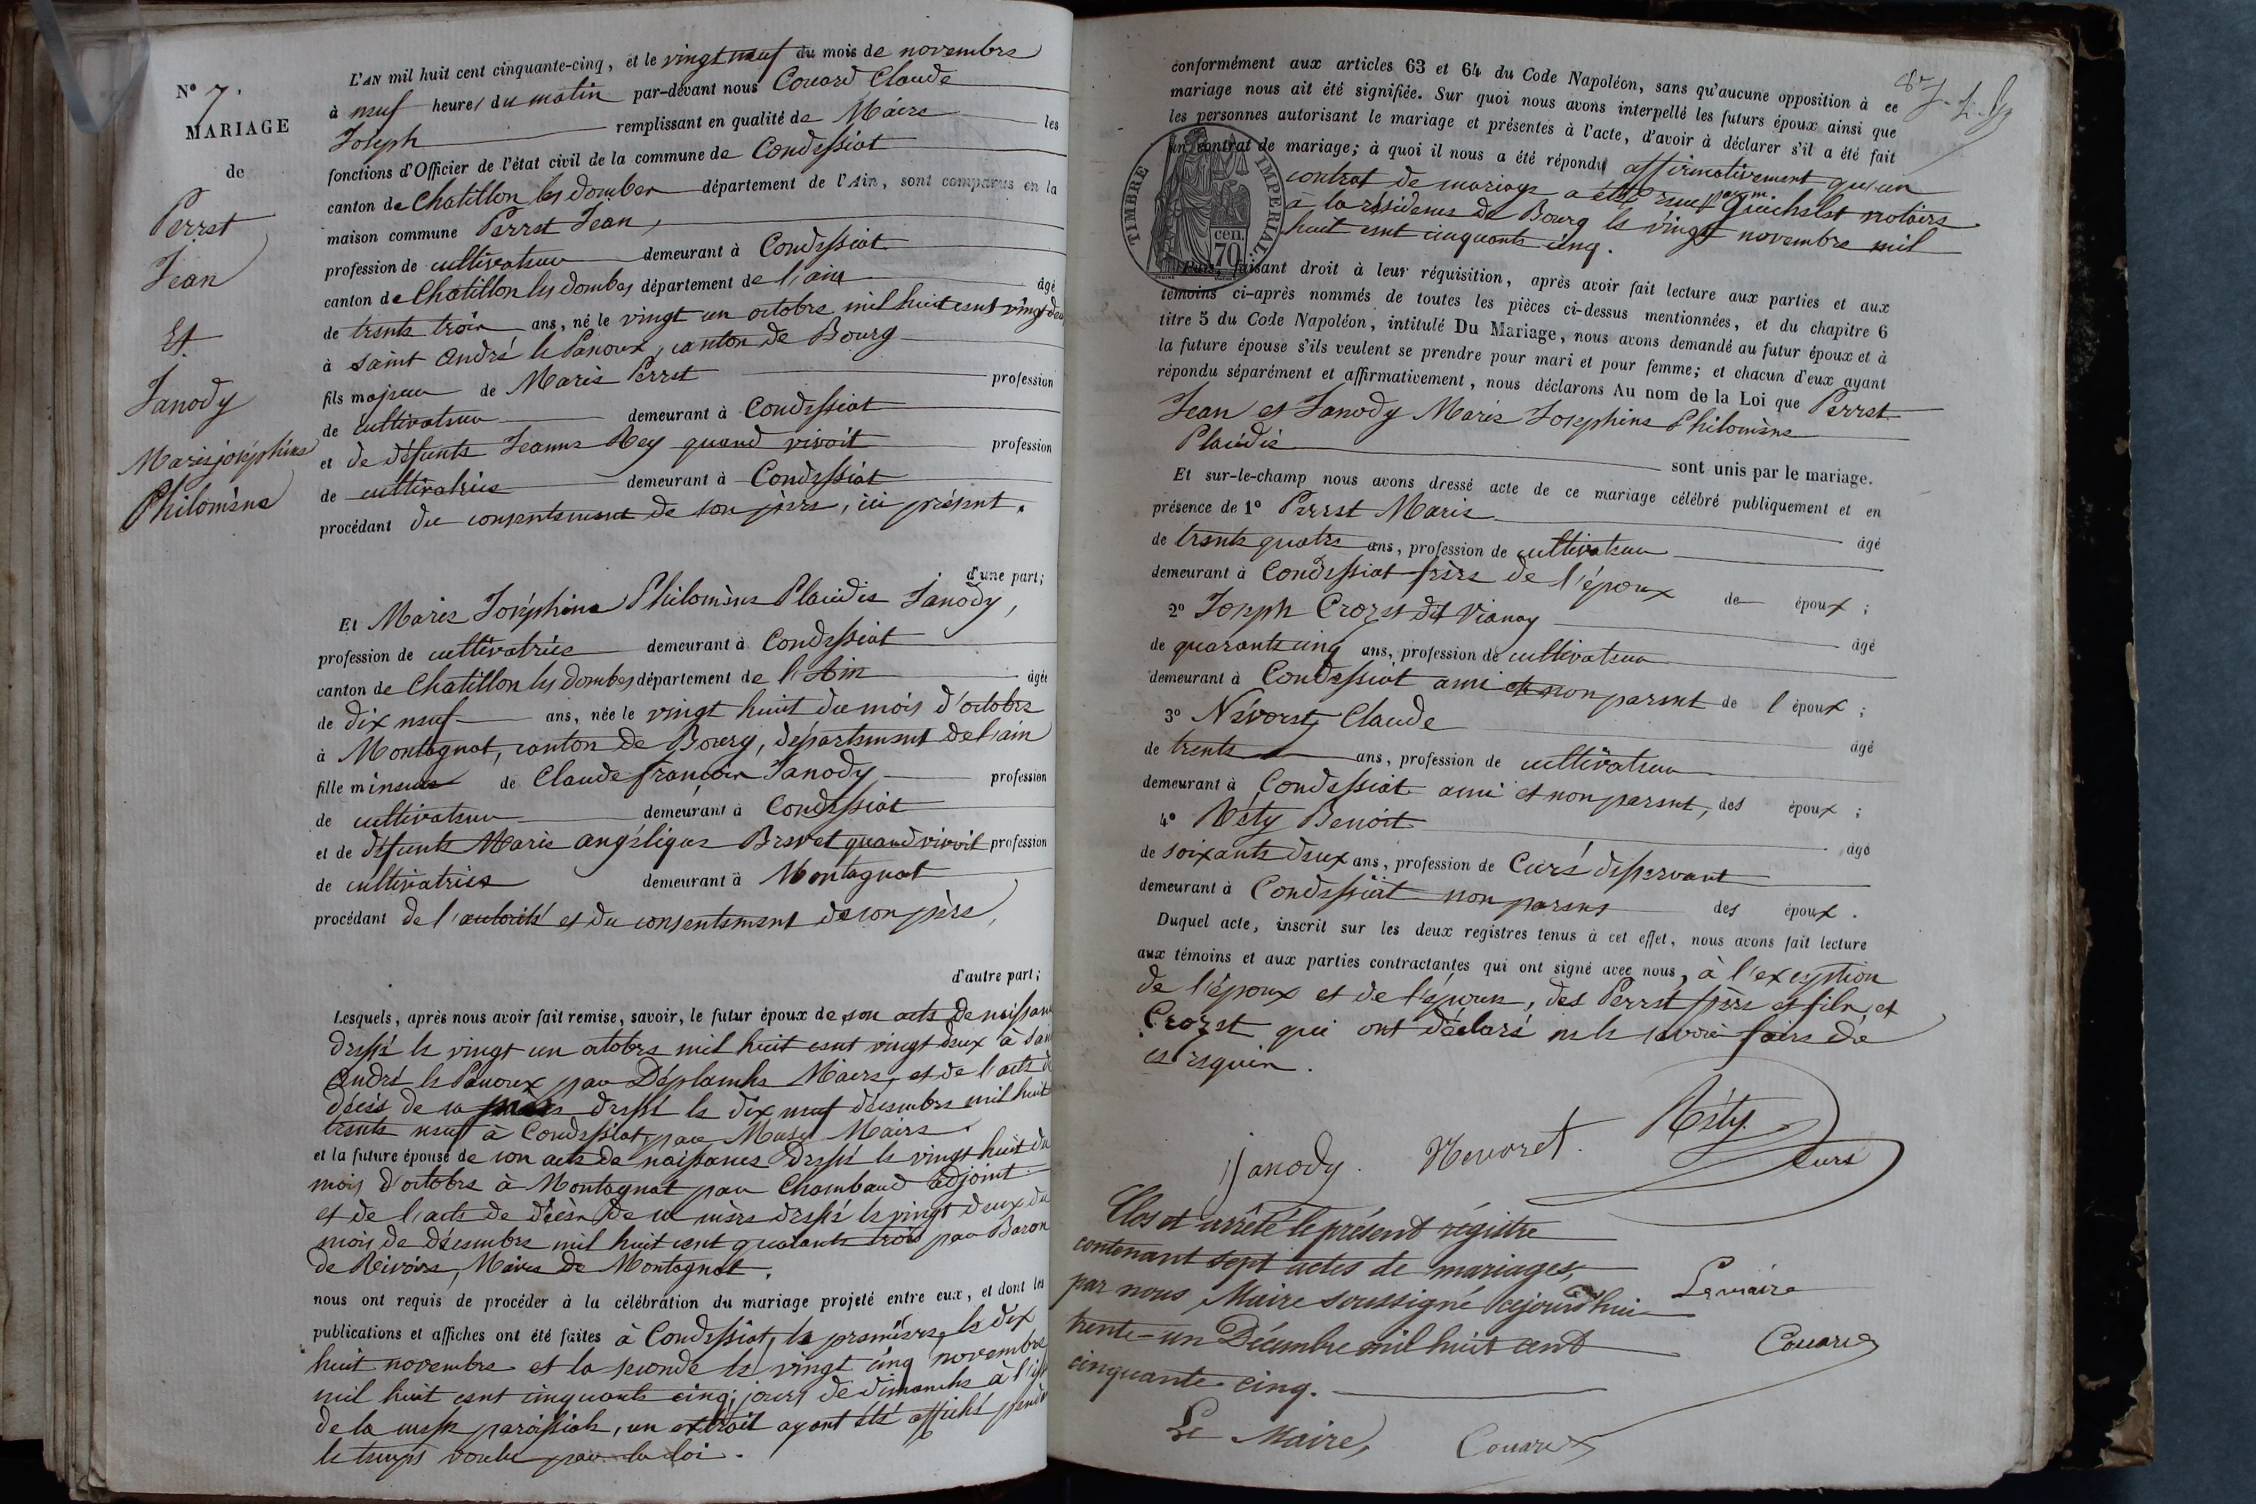 N° 7.
MARIAGE
de
Perret
Jean
Et
Janody
Marie joséphine
Philomène
L'AN mil huit cent cinquante-cinq, et le vingt neuf du mois de novembre
à neuf heures du matin par-devant nous Couard Claude
Joseph remplissant en qualité de Maire les
fonctions d'Officier de l'état civil de la commune de Condeissiat
canton de Chatillon les dombes département de l'Ain, sont comparus en la
maison commune Perret Jean,
profession de cultivateur demeurant à Condeissiat
canton de Chatillon les dombes département de l'ain âgé
de trente trois ans, né le vingt un octobre mil huit cent vingt deux
à saint André le Panoux, canton de Bourg
fils majeur de Marie Perret profession
de cultivateur demeurant à Condeissiat
et de défunte Jeanne Rey quand vivait profession
de cultivatrice demeurant à Condeissiat
procédant du consentement de son père, ici présent.
d'une part;
Et Marie Joséphine Philomène Placidie Janody,
profession de cultivatrice demeurant à Condeissiat
canton de Chatillon les dombes département de l'Ain âgée
de dix neuf ans, née le vingt huit du mois d'octobre
à Montagnat, canton de Bourg, département de l'ain
fille mineure de Claude françois Janody profession
de cultivateur demeurant à Condeissiat
et de défunte Marie angélique Brevet quand vivoit profession
de cultivatrice demeurant à Montagnat
procédant de l'autorité et du consentement de son père,
d'autre part;
Lesquels, après nous avoir fait remise, savoir, le futur époux de son acte de naissance
dressé le vingt un octobre mil huit cent vingt deux à Saint
André le Panoux par Déplanche Maire, et de l'acte de
décès de sa mère dressé le dix neuf décembre mil huit
trente neuf à Condeissiat par Maire.
et la future épouse de son acte de naissance dressé le vingt huit du
mois d'octobre à Montagnat par Chambaud adjoint
et de l'acte de décès de sa mère dressé le vingt deux du
mois de décembre mil huit cent quarante trois par Baron
de Rivoire, Maire de Montagnat.
nous ont requis de procéder à la célébration du mariage projeté entre eux, et dont les
publications et affiches ont été faites à Condeissiat, la première, le dix
huit novembre et la seconde le vingt cinq novembre
mil huit cent cinquante cinq; jours de dimanche à l'issue
de la messe paroissiale, un extrait ayant été affiché pendant
le temps voulu par la loi.
conformément aux articles 63 et 64 du Code Napoléon, sans qu'aucune opposition à ce
mariage nous ait été signifiée. Sur quoi nous avons interpellé les futurs époux ainsi que
les personnes autorisant le mariage et présentes à l'acte, d'avoir à déclarer s'il a été fait
un contrat de mariage; à quoi il nous a été répondu affirmativement qu'un
contrat de mariage a été reçu par m. Guichelet notaire
à la résidence de Bourg le vingt novembre mil
huit cent cinquante cinq.
TIMBRE IMPERIAL
70 cen.
Puis, faisant droit à leur réquisition, après avoir fait lecture aux parties et aux
témoins ci-après nommés de toutes les pièces ci-dessus mentionnées, et du chapitre 6
titre 5 du Code Napoléon, intitulé Du Mariage, nous avons demandé au futur époux et à
la future épouse s'ils veulent se prendre pour mari et pour femme; et chacun d'eux ayant
répondu séparément et affirmativement, nous déclarons Au nom de la Loi que Perret
Jean et Janody Marie Josephine Philomène
Placidie sont unis par le mariage.
Et sur-le-champ nous avons dressé acte de ce mariage célébré publiquement et en
présence de 1° Perret Marie âgé
de trente quatre ans, profession de cultivateur
demeurant à Condeissiat frère de l'époux de époux;
2° Joseph Crozet dit Vianay âgé
de quarante cinq ans, profession de cultivateur
demeurant à Condeissiat ami et non parent de l'époux;
3° Névoret, Claude âgé
de trente ans, profession de cultivateur
demeurant à Condeissiat ami et non parent, des époux;
4° Réty Benoit âgé
de soixante deux ans, profession de Curé desservant
demeurant à Condeissiat non parent des époux.
Duquel acte, inscrit sur les deux registres tenus à cet effet, nous avons fait lecture
aux témoins et aux parties contractantes qui ont signé avec nous, à l'exception
de l'époux et de l'épouse, des Perret père et fils, et
Crozet qui ont déclaré ne le savoir faire de
ce requis.
Janody. Nevoret. Réty
Curé
Clos et arrêté le présent régistre
contenant sept actes de mariages,
par nous Maire soussigné cejourd'hui
trente-un Décembre mil huit cent
cinquante-cinq.
Le maire
Couard
Le Maire,
Couard